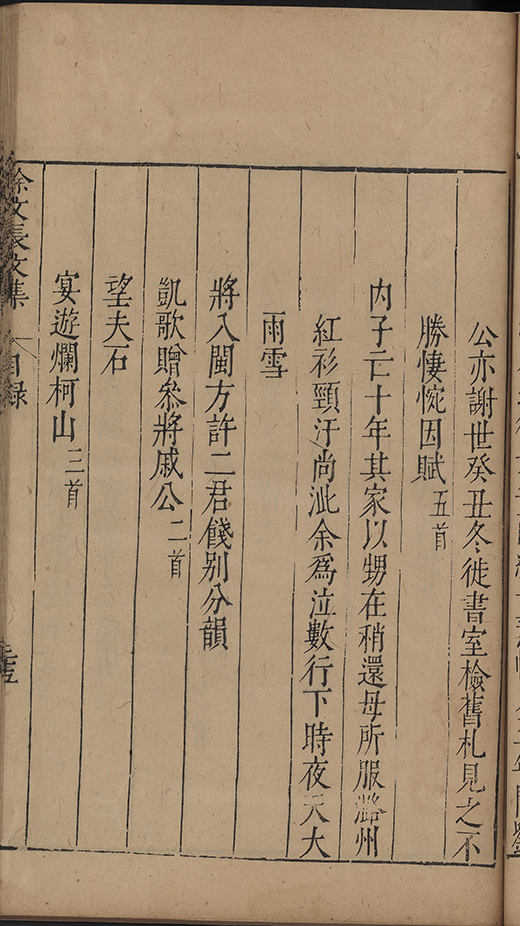 公亦謝世癸丑冬徙書室檢舊札見之不
勝悽惋因賦五首
内子亡十年其家以甥在稍還母所服潞州
紅衫頸汗尚泚余為泣數行下時夜天大
雨雪
將入閩方許二君餞别分韻
凱歌贈叅將戚公二首
望夫石
宴遊爛柯山三首
徐文長文集 目録